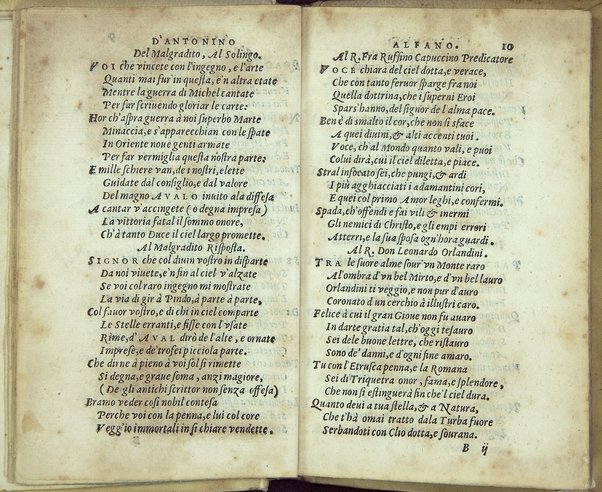 D'ANTONINO
Del Malgradito, Al Solingo.
VOI che vincete con l'ingegno, e l'arte
Quanti mai fur in questa, e'n altra etate
Mentre la guerra di Michel cantate
Per far scriuendo gloriar le carte:
Hor ch'aspra guerra à noi superbo Marte
Minaccia, e s'apparecchian con le spate
In Oriente noue genti armate
Per far vermiglia questa nostra parte:
E mille schiere van, de i nostri, elette
Guidate dal consiglio, e dal valore
Del magno AVALO inuito ala diffesa
A cantar v'accingete (o degna impresa)
La vittoria fatal il sommo onore,
Ch'à tanto Duce il ciel largo promette.
Al Malgradito Risposta.
SIGNOR che col diuin vostro in disparte
Da noi viuete, e'n fin al ciel v'alzate
Se voi col raro ingegno mi mostrate
La via di gir à Pindo, à parte à parte,
Col fauor vostro, e di chi in ciel comparte
Le Stelle erranti, e fisse con l'vsate
Rime, d'AVAL dirò de l'alte, e ornate
Imprese, e de' trofei picciola parte.
Che dirne à pieno à voi sol si rimette
Si degna, e graue soma, anzi magiore,
(De gli antichi scrittor non senza offesa)
Bramo veder così nobil contesa
Perche voi con la penna, e lui col core
Vegg'io immortali in sì chiare vendette.
ALFANO. 10
Al R. Fra Ruffino Capuccino Predicatore
VOCE chiara del ciel dotta, e verace,
Che con tanto feruor sparge fra noi
Quella dottrina, che i superni Eroi
Spars'hanno, del signor de l'alma pace.
Ben è di smalto il cor, che non si sface
A quei diuini, & alti accenti tuoi.
Voce, ch'al Mondo quanto vali, e puoi
Colui dirà, cui il ciel diletta, e piace.
Stral infocato sei, che pungi, & ardi
I più agghiacciati i adamantini cori,
E quei col primo Amor leghi, e confermi.
Spada, ch'offendi e fai vili & inermi
Gli nemici di Christo, e gli empi errori
Atterri, e la sua sposa ogn'hora guardi.
Al R. Don Leonardo Orlandini.
TRA le suore alme sour'vn Monte raro
Al'ombra d'vn bel Mirto, e d'vn bel lauro
Orlandini ti veggio, e non pur d'auro
Coronato d'un cerchio à illustri caro.
Felice à cui il gran Gioue non fu auaro
In darte gratia tal, ch'oggi tesauro
Sei dele buone lettre, che ristauro
Sono de' danni, e d'ogni fine amaro.
Tu con l'Etrusca penna, e la Romana
Sei di Triquetra onor, fama, e splendore,
Che non si estinguerà fin che'l ciel dura.
Quanto deui a tua stella, & a Natura,
Che t'hà omai tratto dala Turba fuore
Serbandoti con Clio dotta, e sourana.
B ij